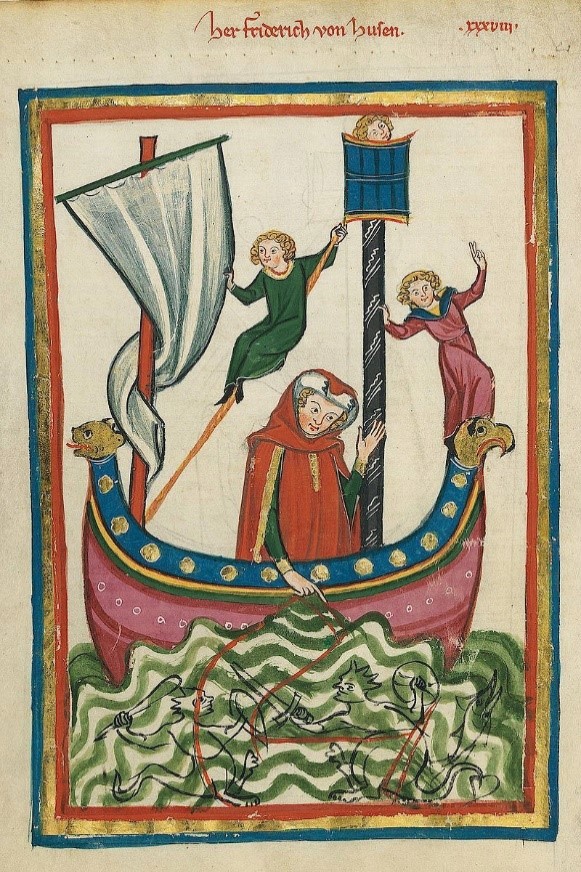 her friderich von husen.
.xxxviii.